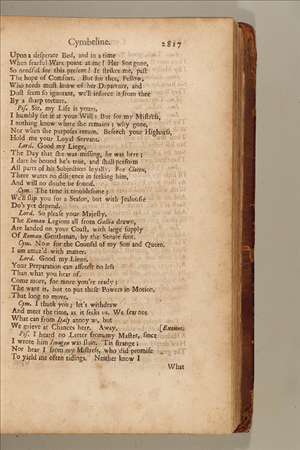 Cymbeline. 2817
Upon a desperate Bed, and in a time
When fearful Wars point at me! Her Son gone,
So needful for this present! It strikes me, past
The hope of Comfort. But for thee, Fellow,
Who needs must know of her Departure, and
Dost seem so ignorant, we'll inforce it from thee
By a sharp torture.
Pis. Sir, my Life is yours,
I humbly set it at your Will: But for my Mistress,
I nothing know where she remains; why gone,
Nor when she purposes return. Beseech your Highness,
Hold me your Loyal Servant.
Lord. Good my Liege,
The Day that she was missing, he was here;
I dare be bound he's true, and shall perform
All parts of his Subjection loyally. For Cloten,
There wants no diligence in seeking him,
And will no doubt be found.
Cym. The time is troublesome;
We'll slip you for a Season, but with Jealousie
Do's yet depend.
Lord. So please your Majesty,
The Roman Legions all from Gallia drawn,
Are landed on your Coast, with large supply
Of Roman Gentlemen, by the Senate sent.
Cym. Now for the Counsel of my Son and Queen.
I am amaz'd with matter.
Lord. Good my Liege,
Your Preparation can affront no less
Than what you hear of.
Come more, for more you're ready;
The want is, but to put those Powers in Motion,
That long to move.
Cym. I thank you; let's withdraw
And meet the time, as it seeks us. We fear not
What can from Italy annoy us, but
We grieve at Chances here. Away. [Exeunt.
Pis. I heard no Letter from my Master, since
I wrote him Imogen was slain. 'Tis strange;
Nor hear I from my Mistress, who did promise
To yield me often tidings. Neither know I
What